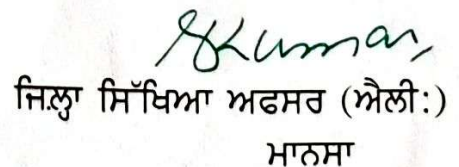 SKumar
ਜਿਲ੍ਹਾ ਸਿੱਖਿਆ ਅਫਸਰ (ਐਲੀ:)
ਮਾਨਸਾ